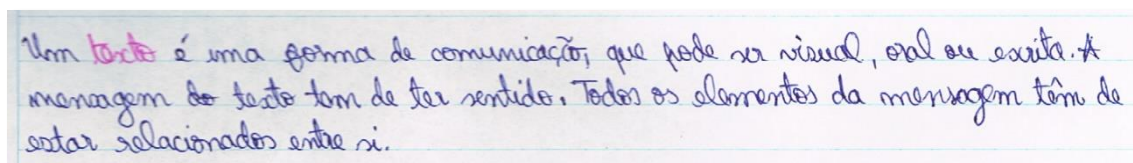 Um texto é uma forma de comunicação, que pode ser visual, oral ou escrita. A
mensagem do texto tem de ter sentido. Todos os elementos da mensagem têm de
estar relacionados entre si.